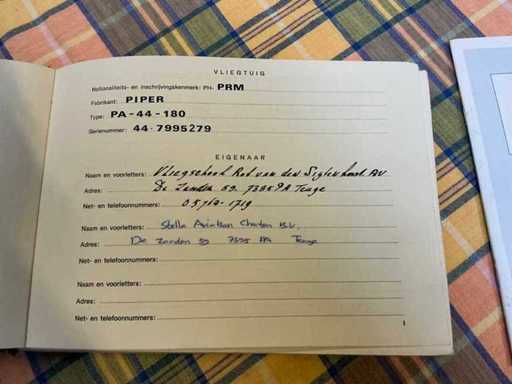 VLIEGTUIG
Nationaliteits- en inschrijvingskenmerk: PH- PRM
Fabrikant: PIPER
Type: PA-44-180
Serienummer: 44-7995279
EIGENAAR
Naam en voorletters: Vliegschool Rob van den
Adres: De Zanden 59. 7395 PA Teuge
Net- en telefoonnummers: 05762-1719
Naam en voorletters: Stella Aviation Charter B.V.
Adres: De Zanden 59 7395 PA Teuge
Net- en telefoonnummers:
Naam en voorletters:
Adres:
Net- en telefoonnummers:
1